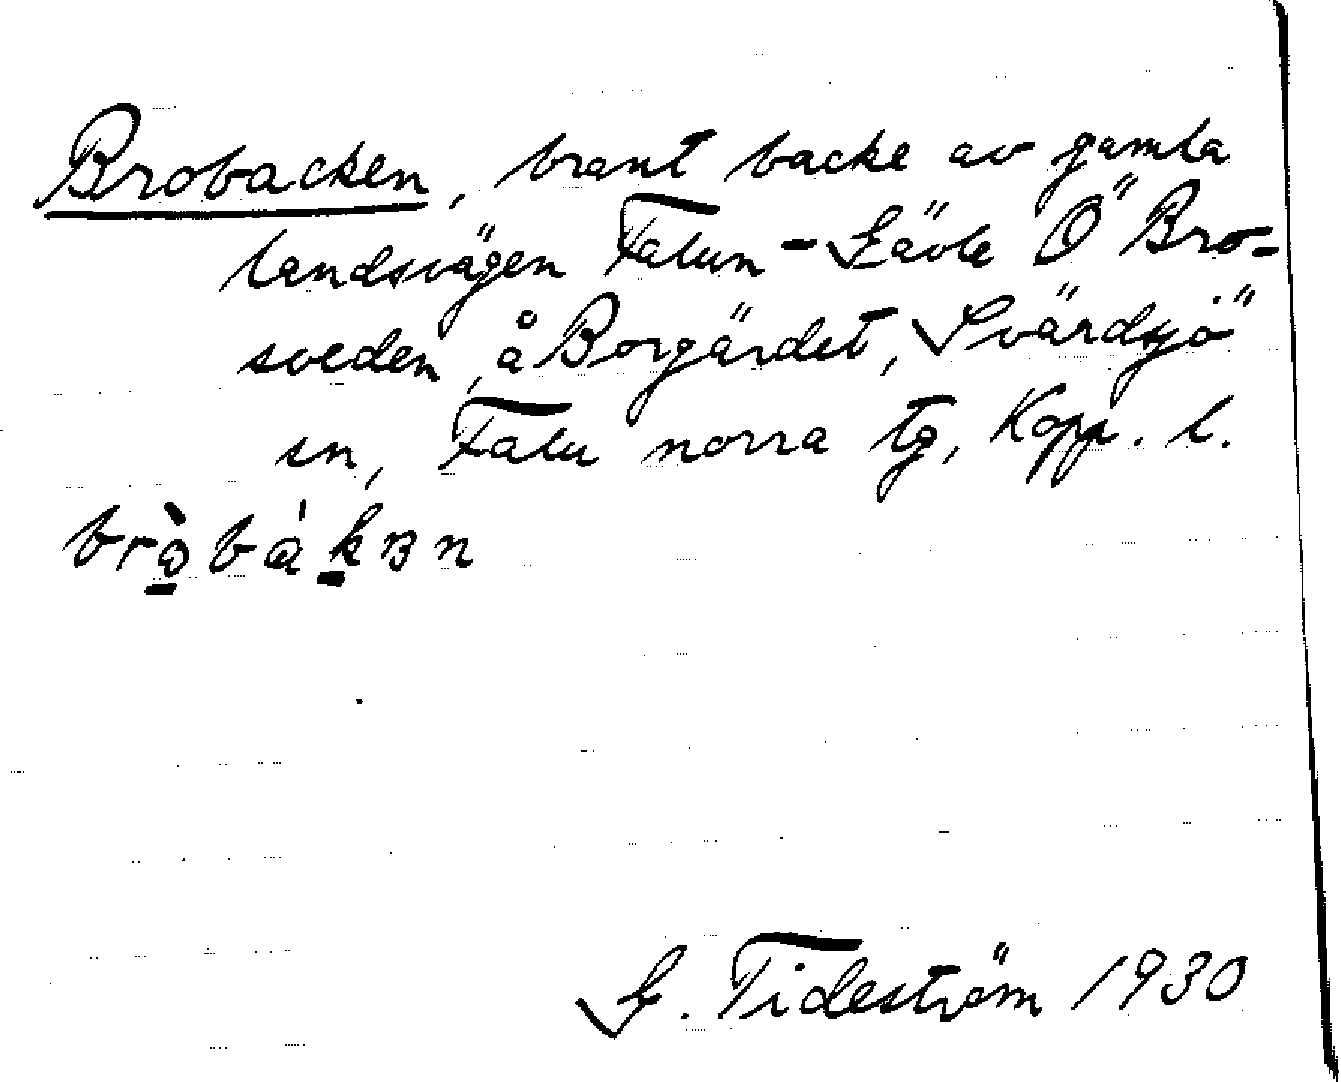 Brobacken, brant backe av gamla
landsvägen Falun - Gävle Ö Bro=
sveden, å Borgärdet, Svärdsjö
sn, Falu norra tg, Kopp. l.
bròbákɞn
G. Tideström 1930